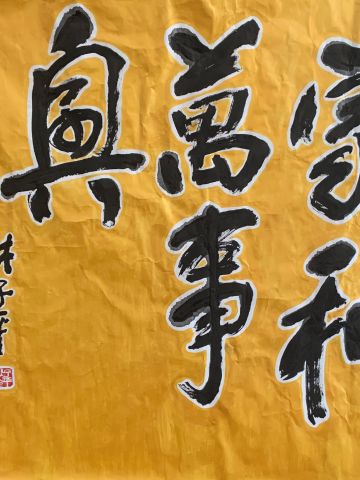 家和
萬事
興
林子